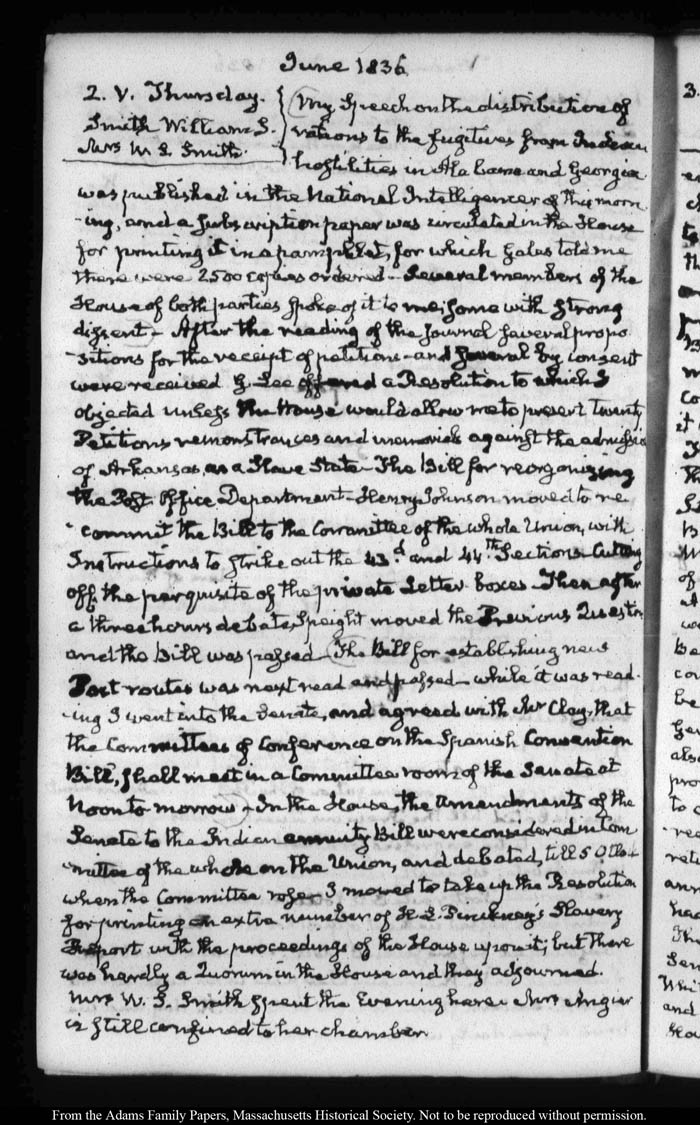 June 1836.
2. V. Thursday. My Speech on the distribution of
Smith William S. rations to the fugitives from Indian
Mrs W. S. Smith. hostilities in Alabama and Georgia
was published in the National Intelligencer of this morn
-ing, and a subscription paper was circulated in the House
for printing it in a pamphlet, for which Gales told me
there were 2500 copies ordered. Several members of the
House of both parties spoke of it to me; some with strong
dissent. After the reading of the Journal several propo
-sitions for the receipt of petitions and several by consent
were received. G. Lee offered a Resolution to which I
objected unless the House would allow me to present twenty
Petitions remonstrances and memorials against the admissio
of Arkansas, as a Slave State. The Bill for reorganizing
the Post Office Department. Henry Johnson moved to re
-commit the Bill to the Committee of the whole Union, with
Instructions to strike out the 43.d and 44th Sections Cutting
off the perquisite of the private Letter boxes. Then after
a three hours debate, Speight moved the Previous Questn
and the bill was passed. The Bill for establishing new
Post routes was next read and passed. while it was read-
-ing I went into the Senate, and agreed with Mr Clay, that
the Committees of Conference on the Spanish Convention
Bill, shall meet in a Committee room of the Senate at
Noon to morrow. In the House, the amendments of the
Senate to the Indian annuity Bill were considered in Com
-mittee of the whole on the Union, and debated, till 5 O'Clo-
when the Committee rose. I moved to take up the Resolution
for printing an extra number of H. L. Pinckney's Slavery
Report with the proceedings of the House upon it; but there
was hardly a Quorum in the House and they adjourned.
Mrs W. S. Smith spent the Evening here. Mrs Angier
is still confined to her chamber.
From the Adams Family Papers, Massachusetts Historical Society. Not to be reproduced without permission.